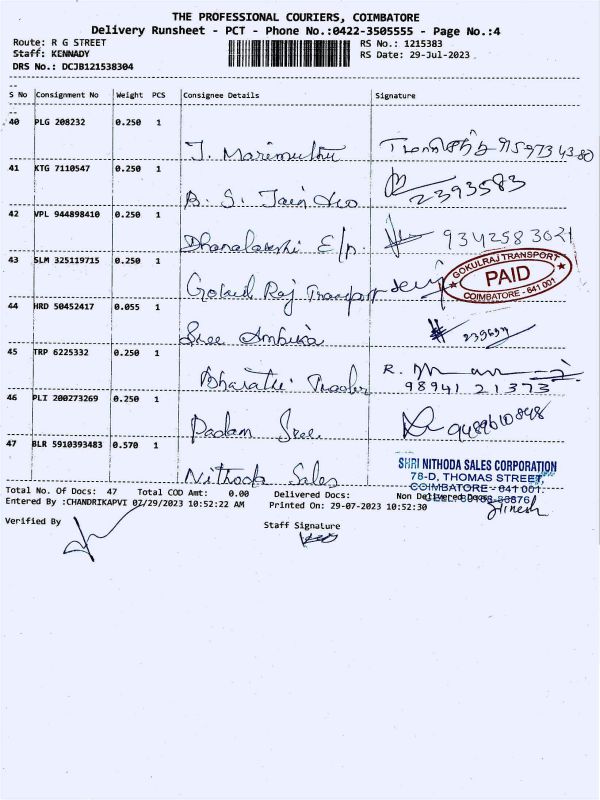 THE PROFESSIONAL COURIERS, COIMBATORE
Delivery Runsheet - PCT - Phone No.:0422-3505555 - Page No.:4
Route: R G STREET RS No.: 1215383
Staff: KENNADY RS Date: 29-Jul-2023
DRS No.: DCJB121538304
S No Consignment No Weight PCS Consignee Details Signature
40 PLG 208232 0.250 1
J. Marimuthu
41 KTG 7110547 0.250 1
B. S. Jain 2393583
42 VPL 944898410 0.250 1
Dhanalakshmi E/p. 9342583021
43 SLM 325119715 0.250 1
GOKULRAJ TRANSPORT
PAID
COIMBATORE - 641 001
Gokul Raj Transport
44 HRD 50452417 0.055 1
Sree Ambika
45 TRP 6225332 0.250 1
Bharathi Traders R.
98941 21373
46 PLI 200273269 0.250 1
Padam Sree
47 BLR 5910393483 0.570 1
SHRI NITHODA SALES CORPORATION
78-D, THOMAS STREET,
Nithoda Sales COIMBATORE - 641 001.
Total No. Of Docs: 47 Total COD Amt: 0.00 Delivered Docs: Non Delivered Docs:
Entered By :CHANDRIKAPVI 07/29/2023 10:52:22 AM Printed On: 29-07-2023 10:52:30
Verified By Staff Signature